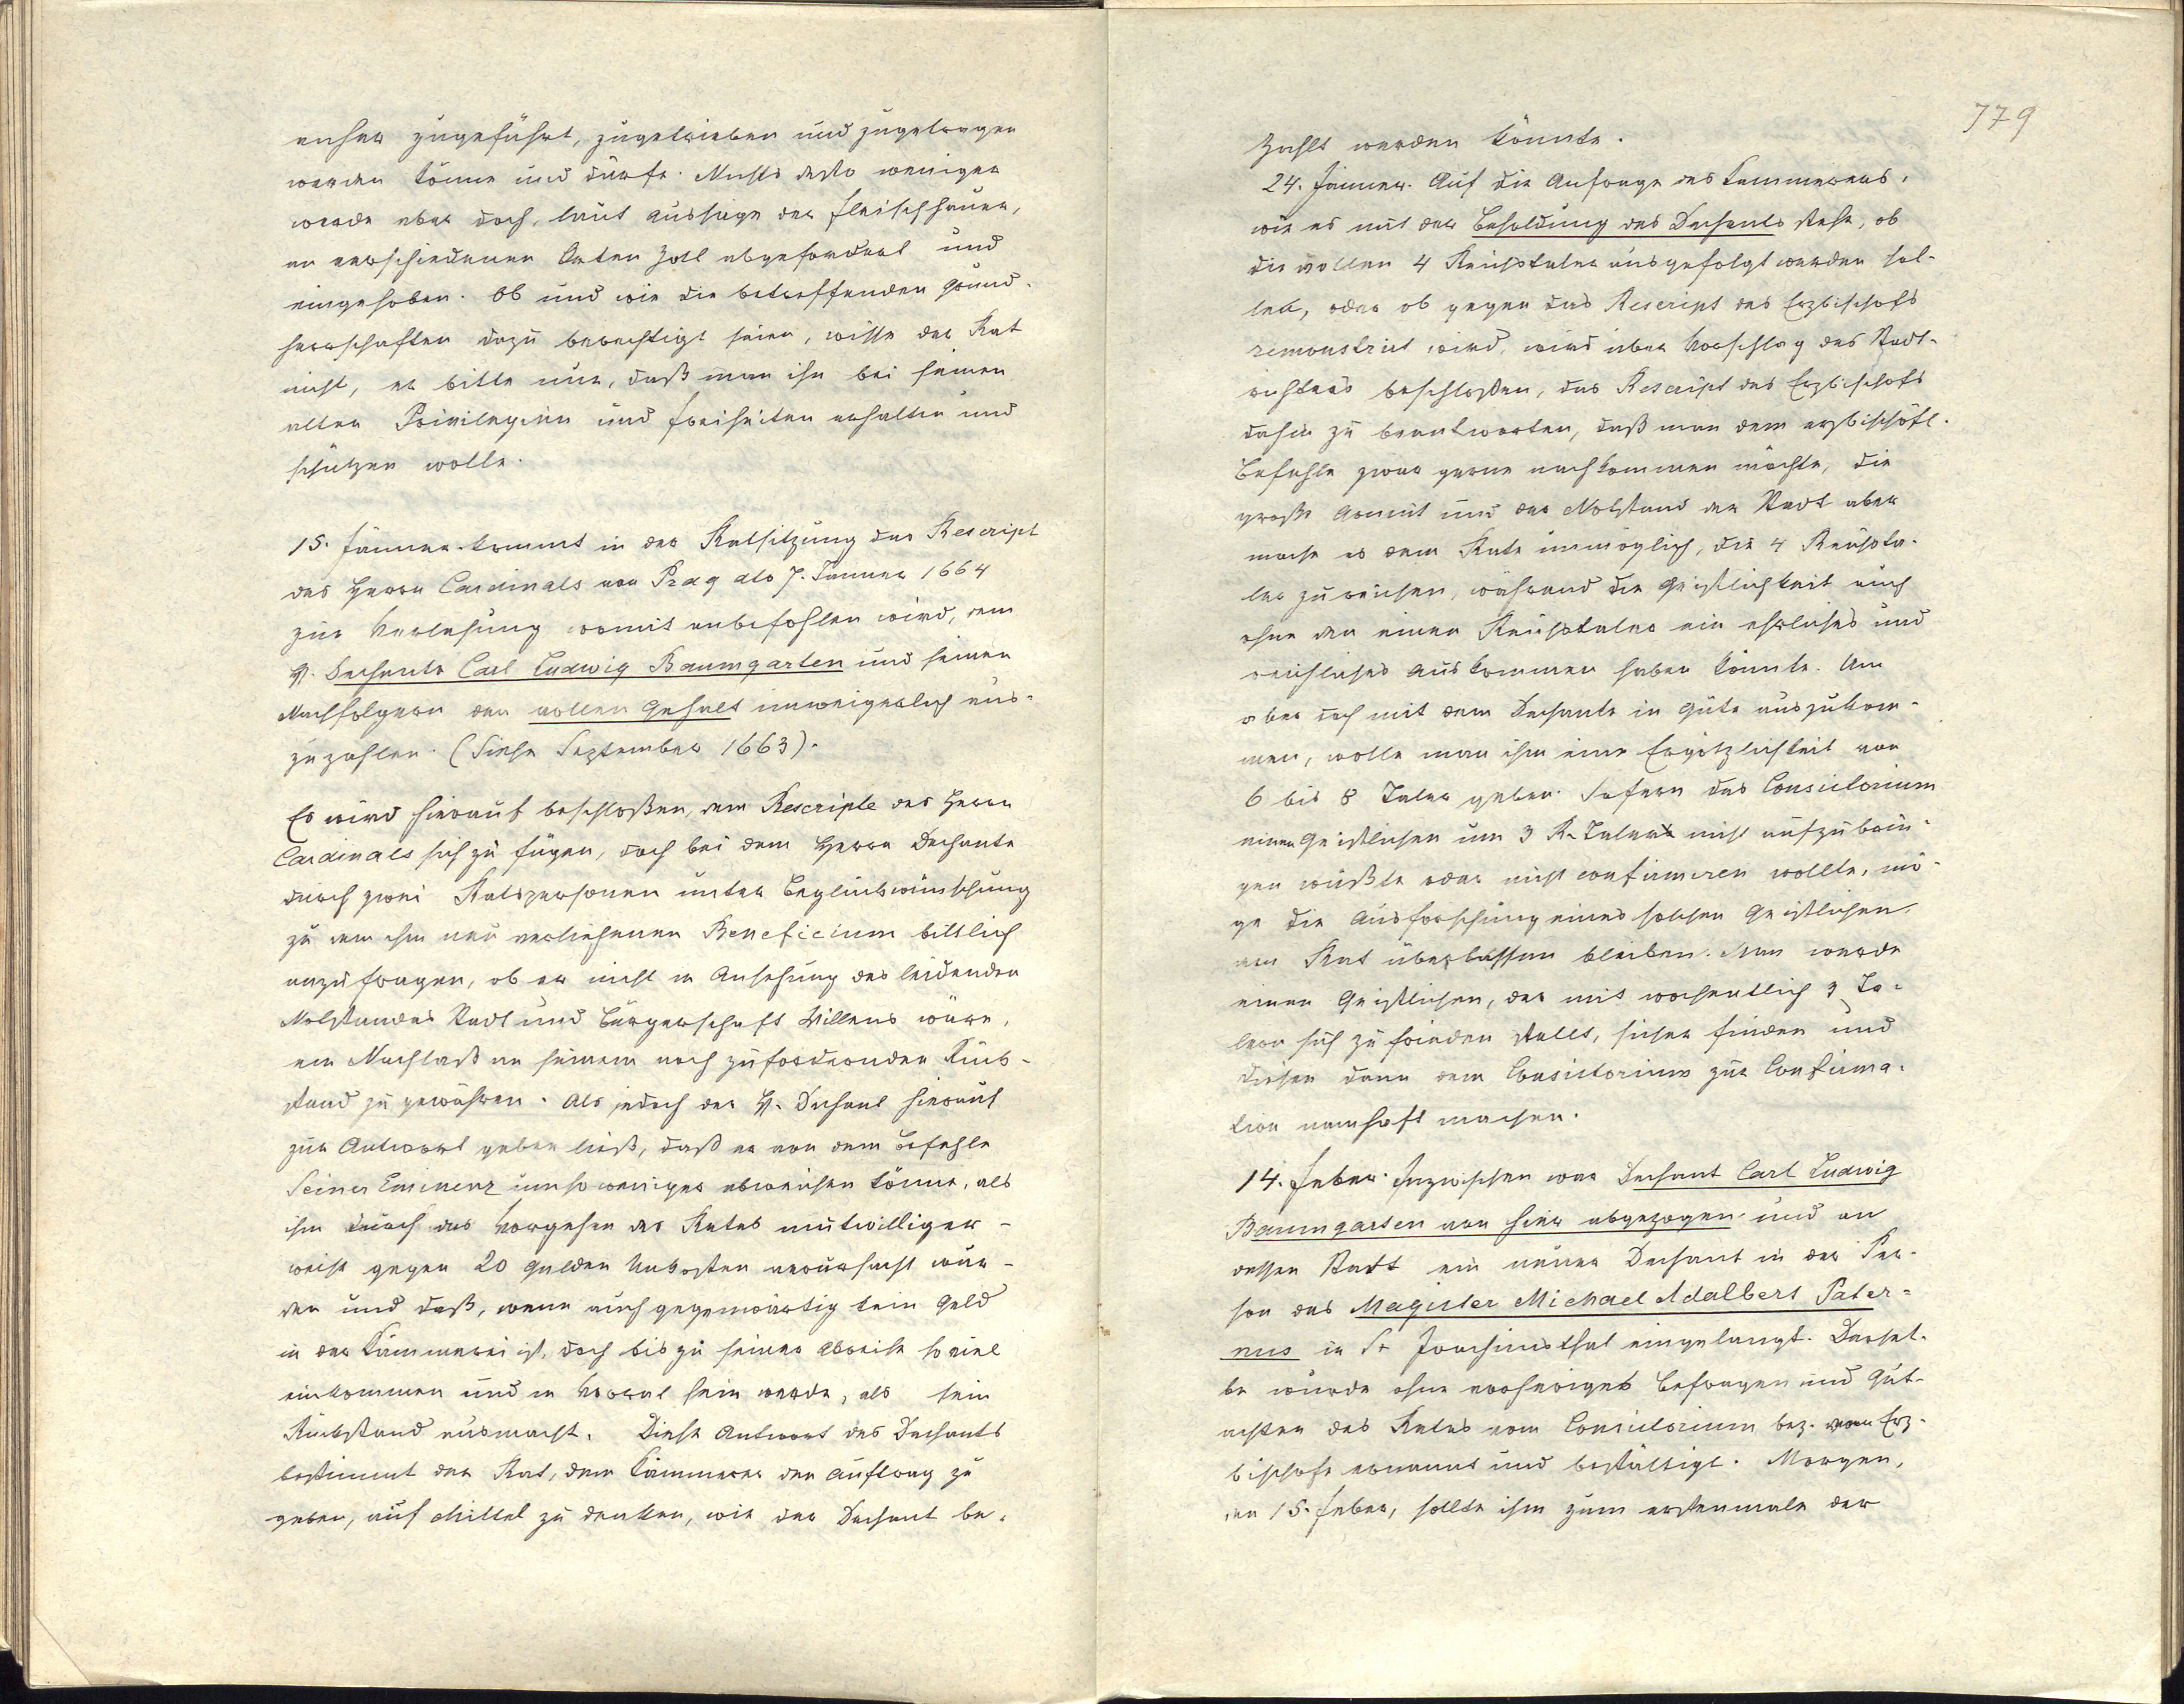 anher zugeführt, zugetrieben und zugetragen
werden könne und dürfe. Nichts desto weniger
werde aber doch, laut Aussage der Fleischhauer,
an verschiedenen Orten Zoll abgefordert und
eingehoben. Ob und wie die betreffenden Grund-
herrschaften dazu berechtigt seien, wisse der Rat
nicht, er bitte nur, daß man ihn bei seinen
alten Privilegien und Freiheiten erhalten und
schützen wolle.
15. Jänner. kommt in der Ratsitzung das Rescript
des Herrn Cardinals von Prag dto 7. Jänner 1664
zur Verlesung womit anbefohlen wird, dem
H. Dechante Carl Ludwig Baumgarten und seinen
Nachfolgern den vollen Gehalt unweigerlich aus-
zuzahlen. (Siehe September 1663).
Es wird hierauf beschloßen, dem Rescripte des Herrn
Cardinals sich zu fügen, doch bei dem Herrn Dechante
durch zwei Ratspersonen unter Beglückwünschung
zu dem ihm neu verliehenen Beneficium bittlich
anzufragen, ob er nicht in Ansehung des leidenden
Notstandes Stadt und Bürgerschaft Willens wäre,
ein Nachlaß an seinem noch zufordernden Rück-
stand zu gewähren. Als jedoch der H. Dechant hierauf
zur Antwort geben ließ, daß er von dem Befehle
Seiner Eminenz umso weniger abweichen könne, als
ihm durch das Vorgehen des Rates mutwilliger-
weise gegen 20 Gulden Unkosten verursacht wur-
den und daß, wenn auch gegenwärtig kein Geld
in der Kämmerei ist, doch bis zu seiner Abreise soviel
einkommen und in Vorrat sein werde, als sein
Rückstand ausmacht. Diese Antwort des Dechants
bestimmt der Rat, dem Kämmerer den Auftrag zu
geben, auf Mittel zu denken, wie der Dechant be-
779
zahlt werden könnte.
24. Jänner. Auf die Anfrage des Kämmerers,
wie es mit der Besoldung des Dechants stehe, ob
die vollen 4 Reichstaler ausgefolgt werden sol-
len, oder ob gegen das Rescript des Erzbischofs
remonstrirt wird, wird über Vorschlag des Stadt-
richters beschloßen, das Rescript des Erzbischofs
dahin zu beantworten, daß man dem erzbischöfl.
Befehle zwar gerne nachkommen möchte, die
große Armut und der Notstand der Stadt aber
mache es dem Rate unmöglich, die 4 Reichsta-
ler zu reichen, während die Geistlichkeit auch
ohne den einen Reichstaler ein ehrliches und
reichliches Auskommen haben könnte. Um
aber doch mit dem Dechante in Güte auszukom-
men, wolle man ihm eine Ergötzlichkeit von
6 bis 8 Taler geben. Sofern das Consistorium
einen Geistlichen um 3 R. Taler nicht aufzubrin-
gen wüßte oder nicht confirmiren wollte, mö-
ge die Ausforschung eines solchen Geistlichen,
dem Rat überlassen bleiben. Man werde
einen Geistlichen, der mit wochentlich 3 Ta-
lern sich zu frieden stellt, sicher finden und
diesen dann dem Consistorium zur Confirma-
tion namhaft machen.
14. Feber. Inzwischen war Dechant Carl Ludwig
Baumgarten von hier abgezogen und an
dessen Statt ein neuer Dechant in der Per-
son des Magister Michael Adalbert Pater-
nus in St Joachimsthal eingelangt. Dersel-
be wurde ohne vorheriges Befragen und Gut-
achten des Rates vom Consistorium bez. vom Erz-
bischofe ernannt und bestättigt. Morgen,
den 15. Feber, sollte ihm zum erstenmale der